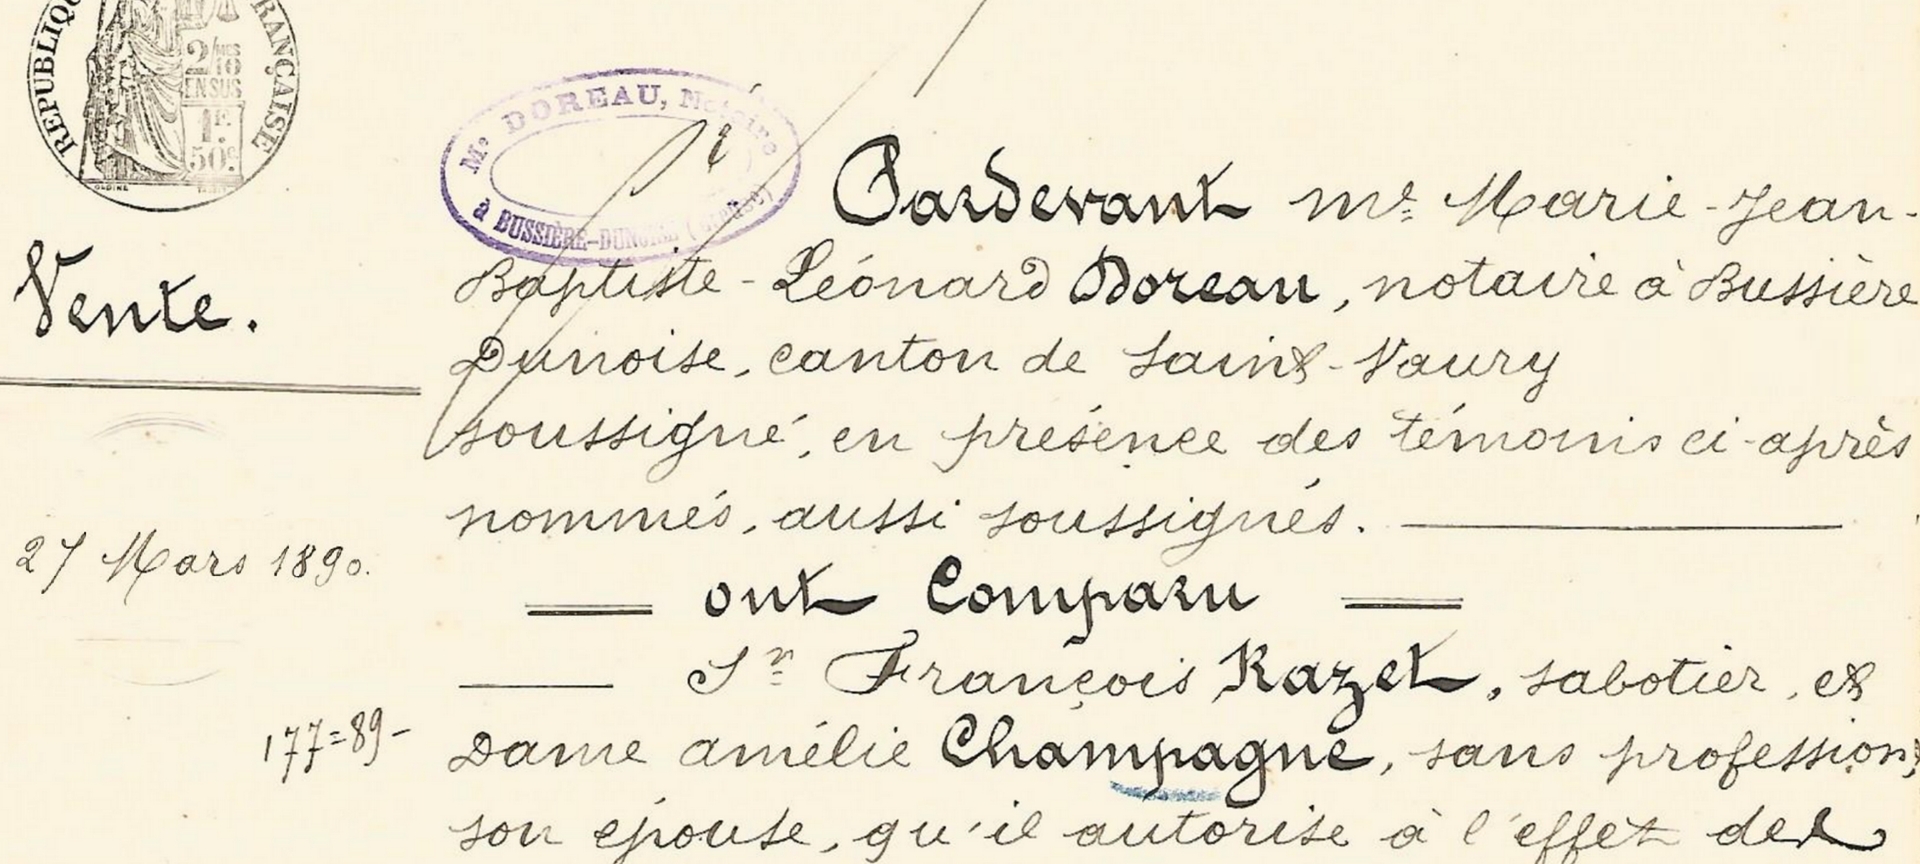 REPUBLIQUE FRANÇAISE
2/10
EN SUS
1F.
50c.
Me DOREAU, Notaire
à BUSSIÈRE-DUNOISE (Creuse)
Vente.
27 Mars 1890.
177=89-
Pardevant Me Marie-Jean-
Baptiste-Léonard Doreau, notaire à Bussière
Dunoise, canton de Saint-Vaury
soussigné, en présence des témoins ci-après
nommés, aussi soussignés.
ont Comparu
Sr François Kazet, sabotier, et
Dame amélie Champagne, sans profession,
son épouse, qu'il autorise à l'effet des